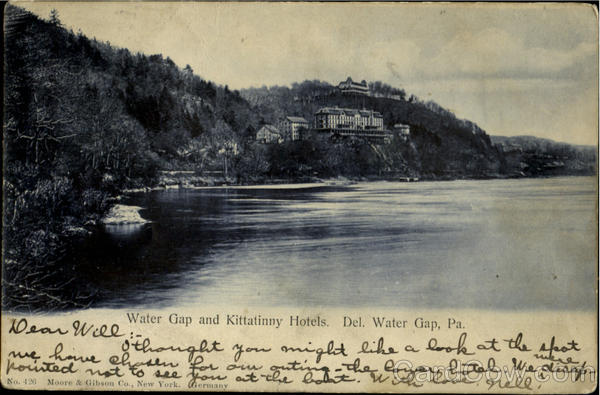 Water Gap and Kittatinny Hotels. Del. Water Gap, Pa.
Dear Will:
I thought you might like a look at the spot
we have chosen for our outing - the lower hotel. We were disap-
pointed not to see you at the boat. With love, Nell.
No. 426 Moore & Gibson Co., New York. Germany
CardCow.com